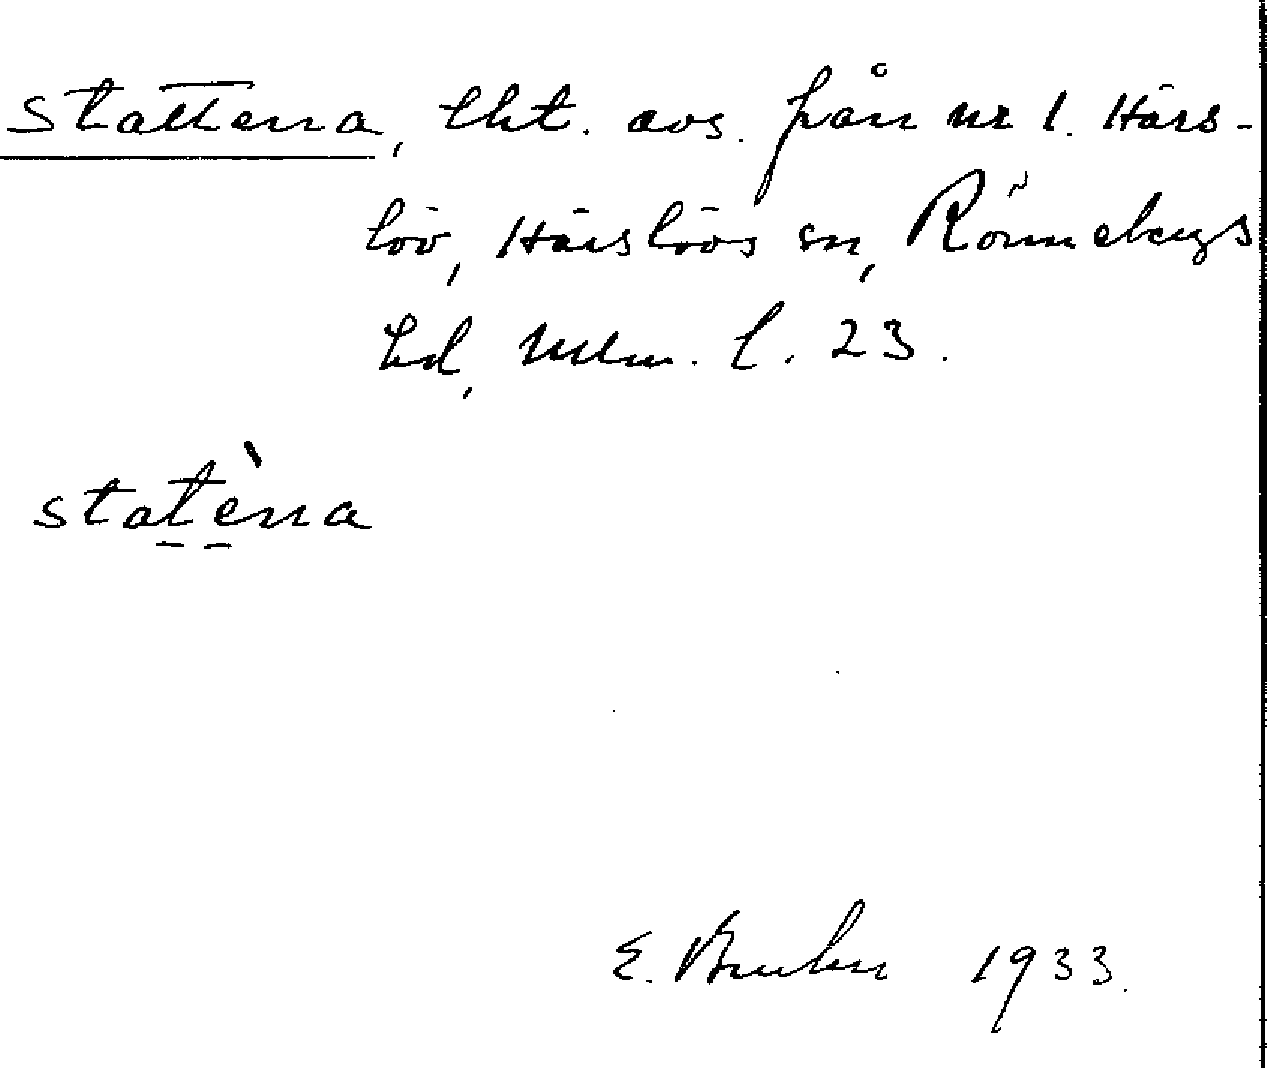 Stattena, lht. avs. från nr 1. Härs-
löv, Härslövs sn, Rönnebergs
hd, Mlm. l. 23.
statèna
E. Bruhn 1933.